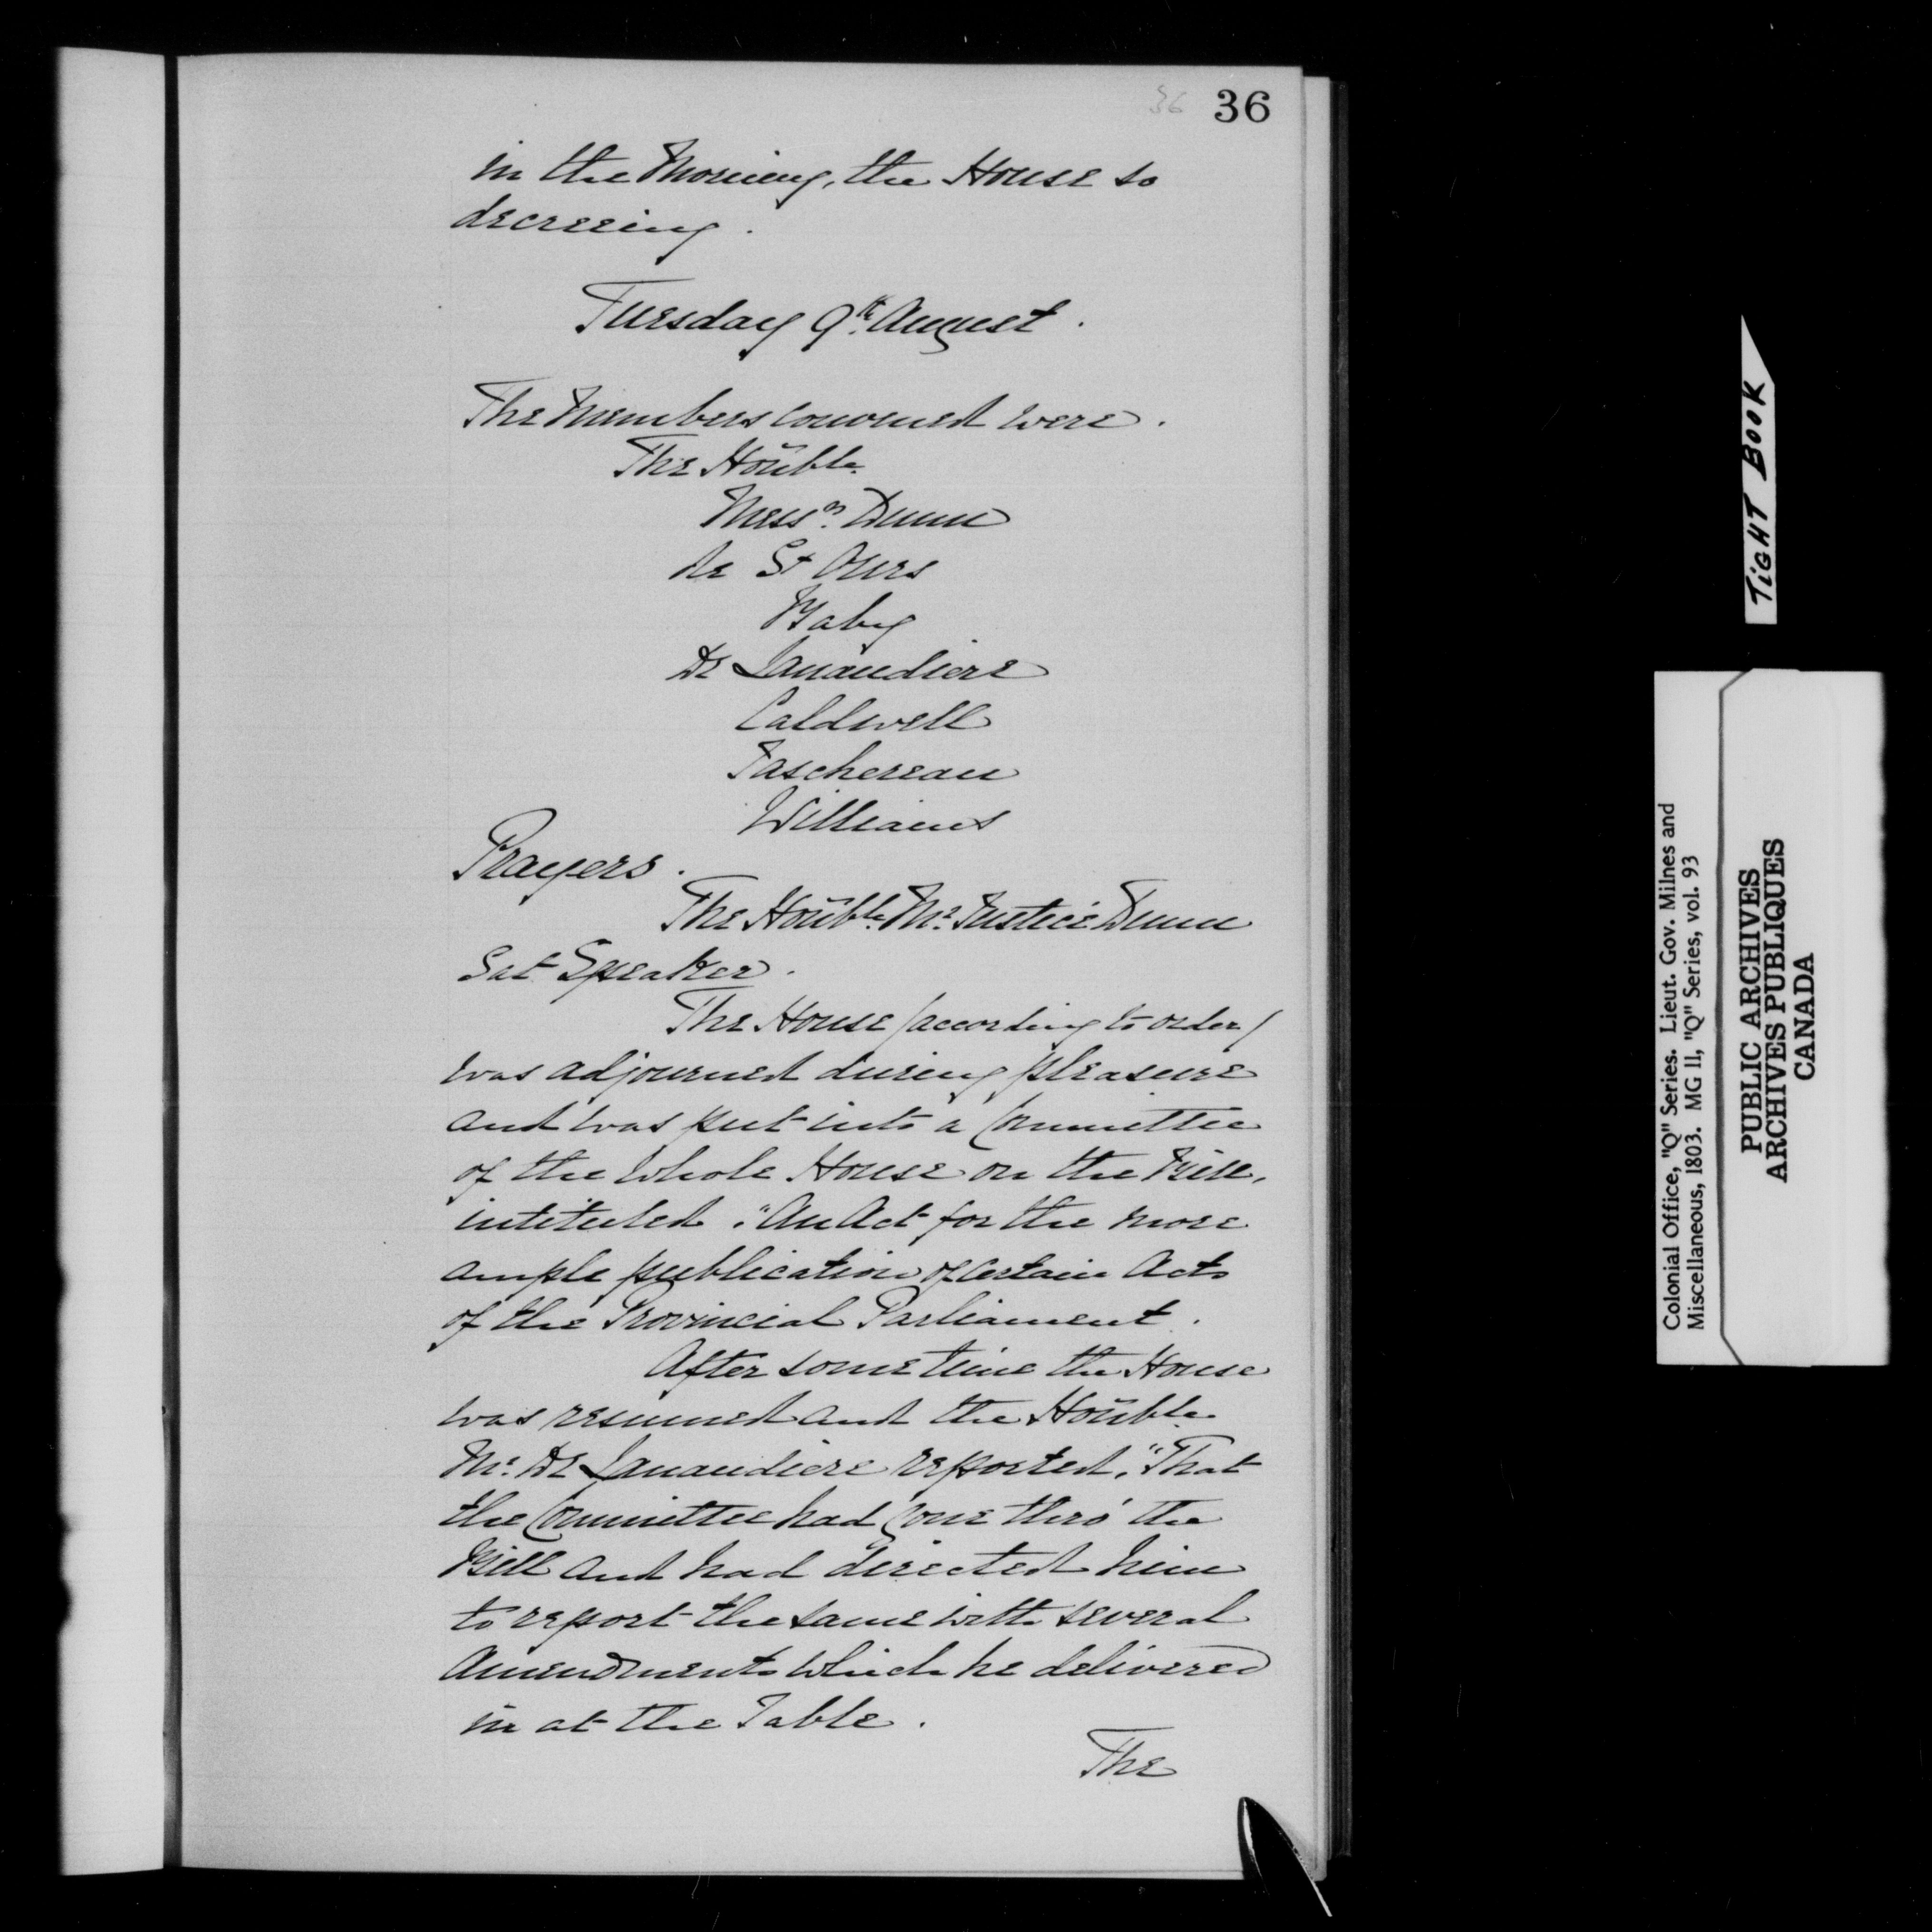 36 36
in the Morning, the House so
decreeing.
Tuesday 9th. August.
The Members convened were.
The Honble.
Messrs. Dunn
de St Ours
Baby
De Lanaudiere
Caldwell
Taschereau
Williams
Prayers.
The Honble. Mr. Justice Dunn
Sat Speaker.
The House /according to order/
was adjourned during pleasure
and was put into a Committee
of the whole House on the Bill,
intituled. "An Act for the more
ample publication of certain Acts
of the Provincial Parliament.
After some time the House
was resumed and the Honble.
Mr. De Lanaudiere reported, "That
the Committee had gone thro' the
Bill and had directed him
to report the same with several
Amendments which he delivered
in at the Table.
The
TIGHT BOOK
Colonial Office, "Q" Series. Lieut. Gov. Milnes and
Miscellaneous, 1803. MG 11, "Q" Series, vol. 93
PUBLIC ARCHIVES
ARCHIVES PUBLIQUES
CANADA